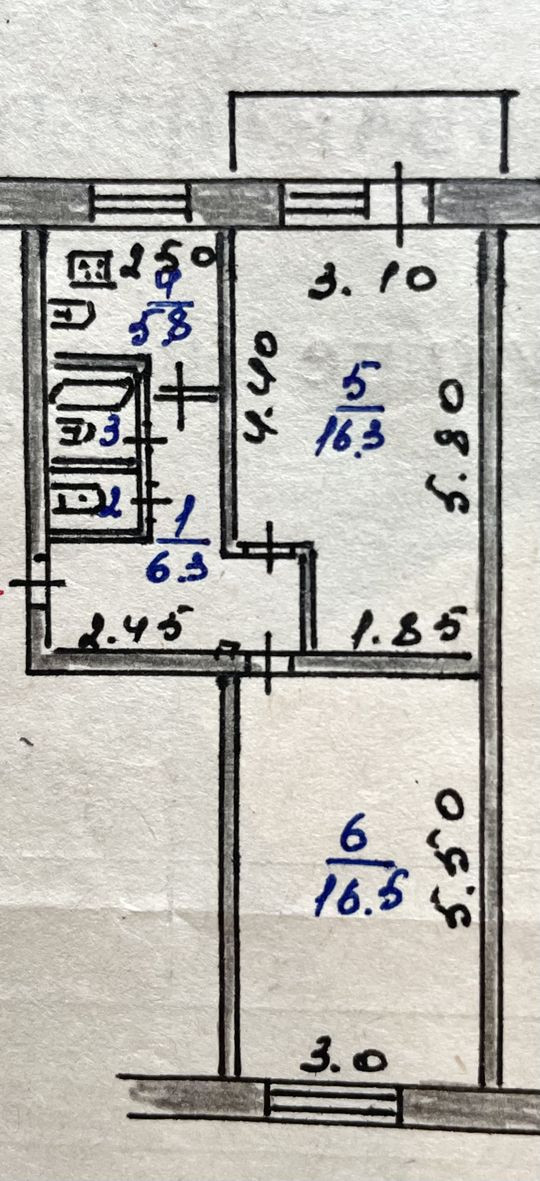 2 50
4
5.8
3.10
4.40
5
16.3
5.80
3
2
1
6.3
2.45
1.85
6
16.5
5.50
3.0